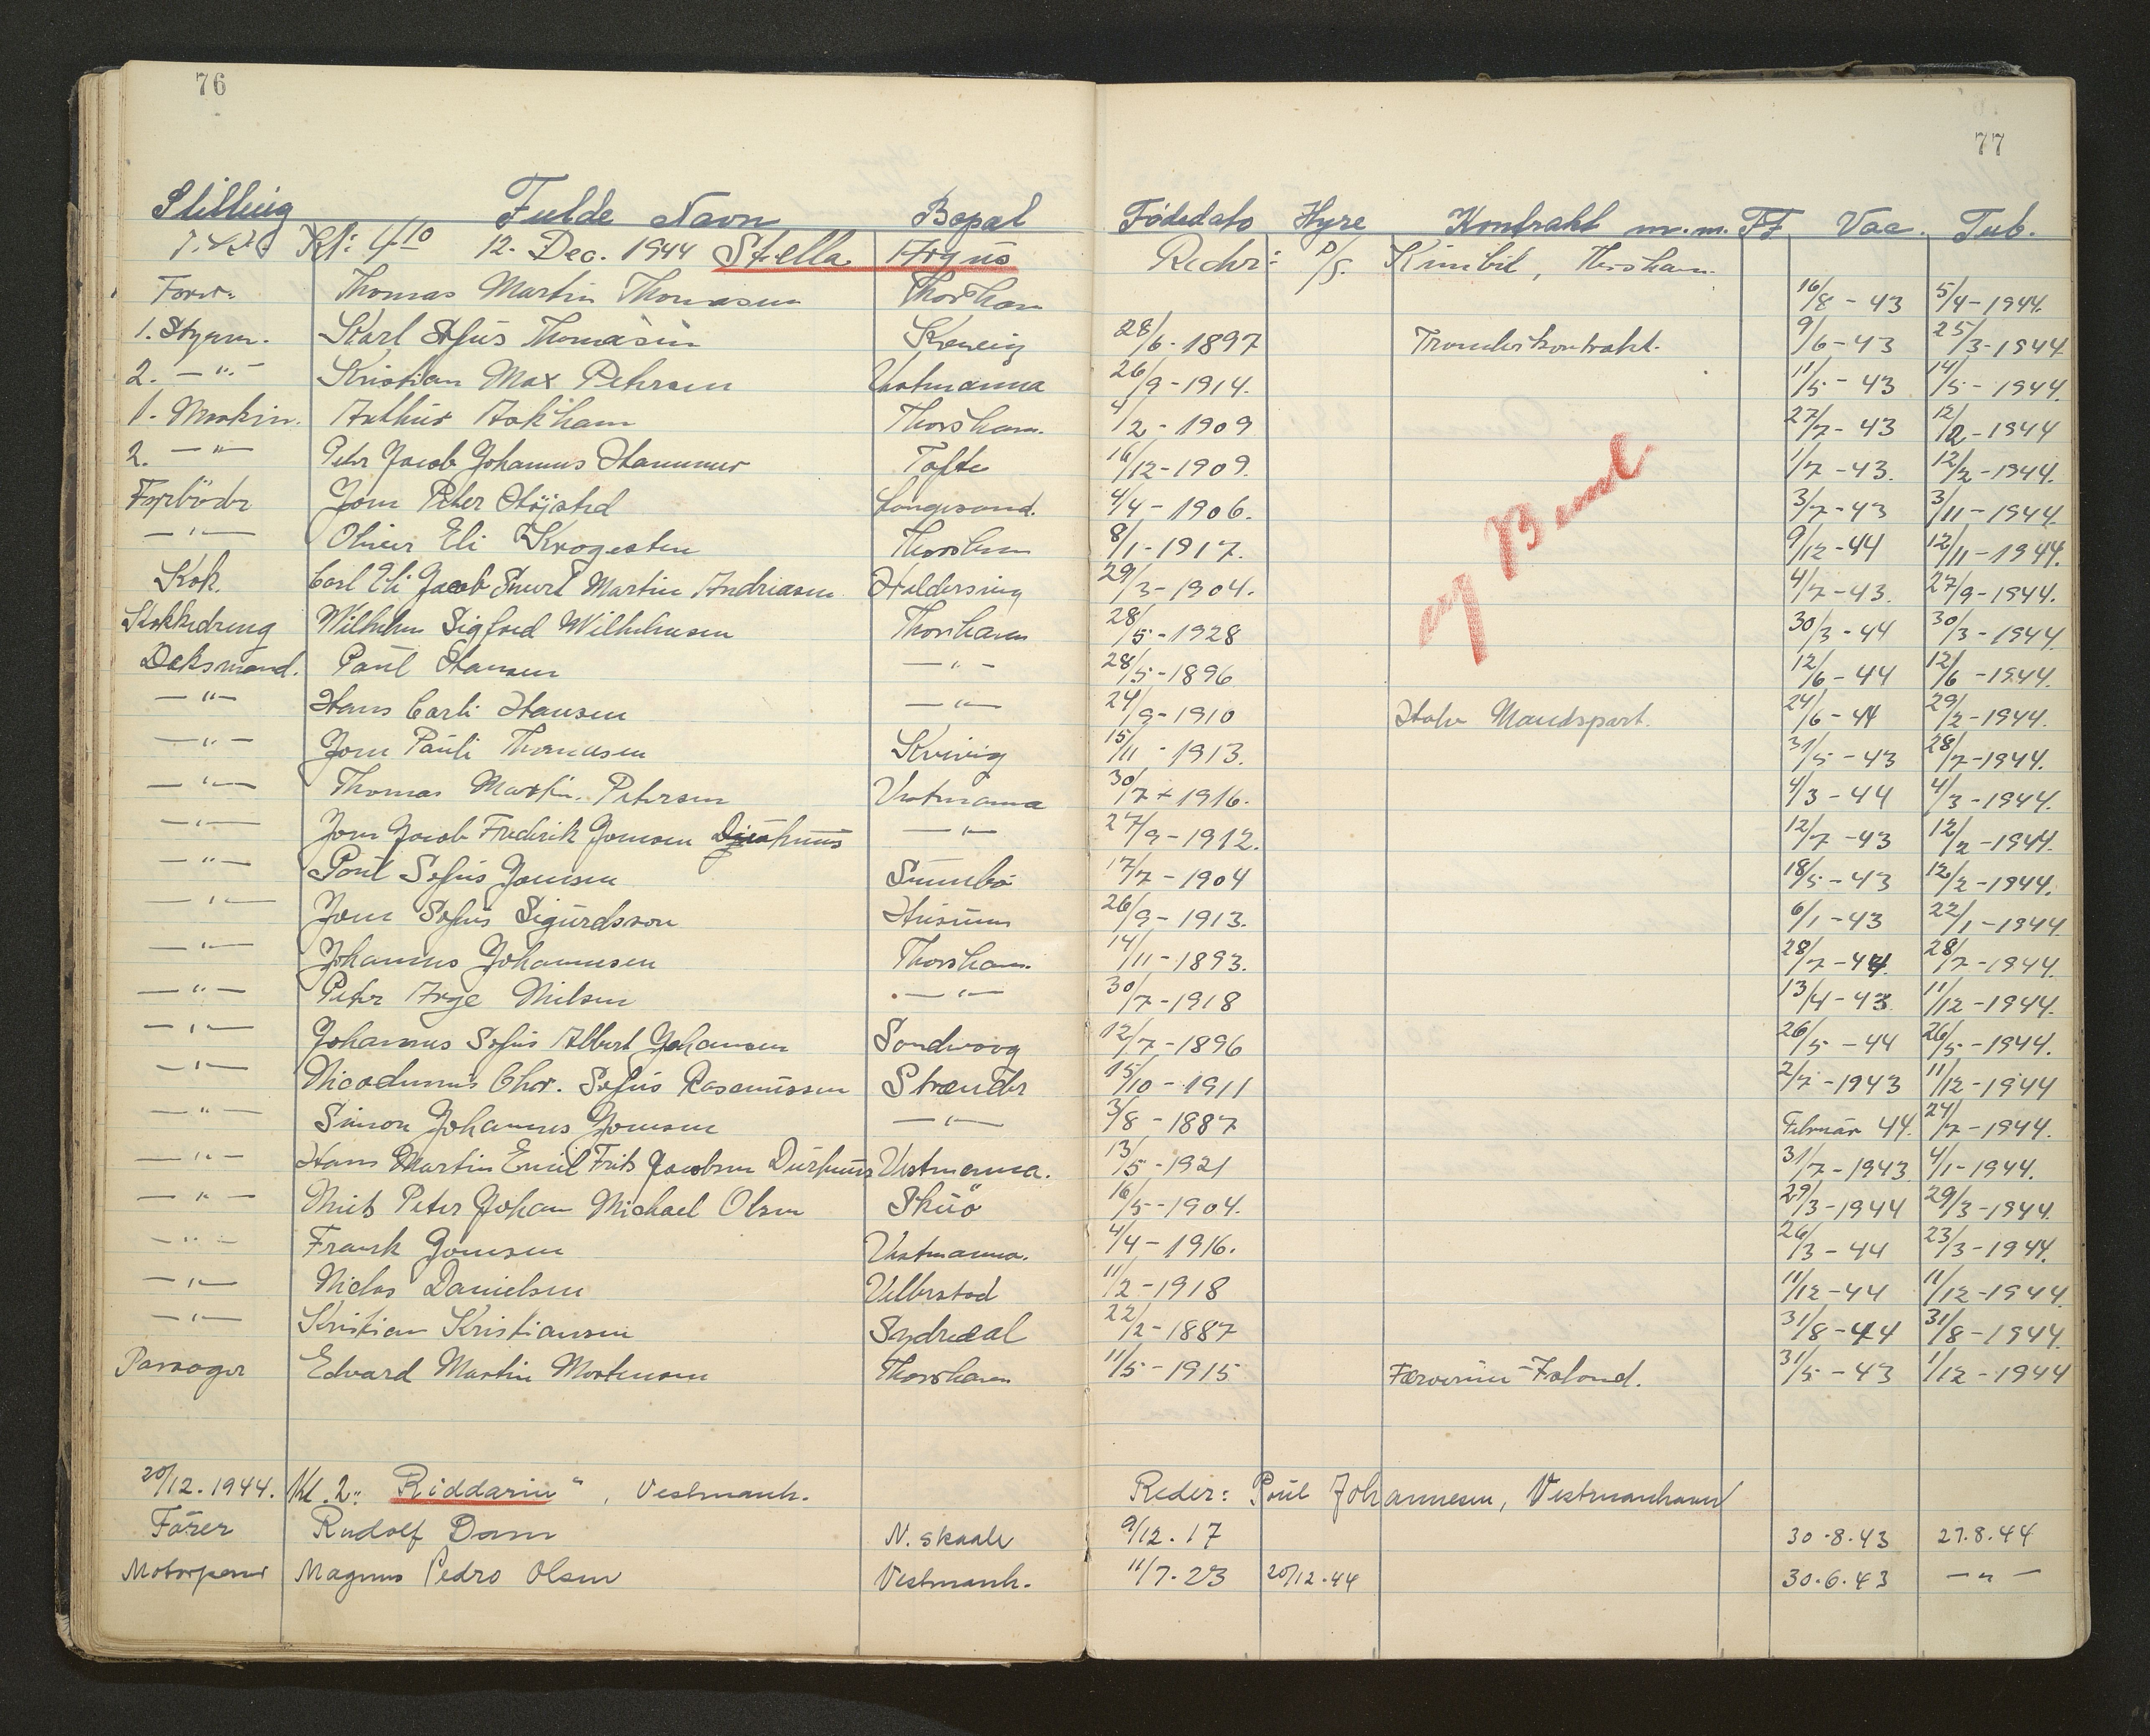 76
77
Stilling Fulde Navn Bopæl Fødedato Hyre Kontrakt m.m. FF Vac. Tub.
Kl: 4 10 12. Dec. 1944 Stella Argus Reder: P/S. Kimbil, Thorshavn.
Thomas Martin Thomasen Thorshavn 16/8 - 43 5/4 - 1944.
1. Styrm. Karl Thomasen Kvivig 28/6 - 1897 9/6 - 43 25/3 - 1944
2. - " - Kristian Max Petersen Vestmanna 26/9 - 1914. 11/5 - 43 14/5 - 1944.
1. Maskin. Arthur Askham Thorshavn. 4/2 - 1909 27/7 - 43 12/2 - 1944
2. - " - Peter Jacob Johannus Hammer Tofte 16/12 - 1909. 1/7 - 43. 12/2 - 1944.
Fyrböder Jom Peter Höjsted 4/4 - 1906. 3/7 - 43 3/11 - 1944.
- " - Eli Krogesten Thorshavn 8/1 - 1917. 9/12 - 44 12/11 - 1944.
Kok. Carl Eli Jacob Martin Andreasen Haldersvig 29/3 - 1904. 4/7 - 43. 27/9 - 1944.
Kokkedreng Wilhelm Sigfred Wilhelmsen Thorshavn 28/5 - 1928 30/3 - 44 30/3 - 1944.
Deksmand. Paul Hansen - " - 28/5 - 1896 12/6 - 44 12/6 - 1944.
- " - Hans Carli Hansen - " - 24/9 - 1910 Halv Mandspart. 24/6 - 44 29/2 - 1944.
- " - Jom Pauli Thomsen Kvivig 15/11 - 1913. 31/5 - 43 28/7 - 1944.
- " - Thomas Martin Petersen Vestmanna 30/7 - 1916. 4/3 - 44 4/3 - 1944.
- " - Jom Jacob Frederik Jomsen - " - 27/9 - 1912. 12/7 - 43 12/2 - 1944.
- " - Poul Sofus Jomsen Sumbö 17/7 - 1904 18/5 - 43 12/2 - 1944.
- " - Jom Sofus Sigurdsson Husum 26/9 - 1913. 6/1 - 43 22/1 - 1944.
- " - Johannus Johannesen Thorshavn. 14/11 - 1893. 28/7 - 44. 28/7 - 1944.
- " - Peter Arge Nielsen - " - 30/7 - 1918 13/4 - 43. 11/12 - 1944.
- " - Johannus Sofus Albert Johansen Sandvaag 12/7 - 1896 26/5 - 44 26/5 - 1944.
- " - Nicodemus Chr. Sofus Rasmussen Strænder 15/10 - 1911 2/7 - 1943 11/12 - 1944
- " - Simon Johannus Jomsen - " - 3/8 - 1887 Februar 44. 24/7 - 1944.
- " - Hans Martin Emil Frits Jacobsen Durhuus Vestmanna. 13/5 - 1921 31/7 - 1943. 4/1 - 1944.
- " - Niels Peter Johan Michael Olsen Skuö 16/5 - 1904. 29/3 - 1944 29/3 - 1944.
- " - Frank Jomsen Vestmanna. 4/4 - 1916. 26/3 - 44 23/3 - 1944.
- " - Niclas Danielsen Velbestad 11/2 - 1918 11/12 - 44 11/12 - 1944.
- " - Kristian Kristiansen Sydredal 22/2 - 1887 31/8 - 44 31/8 - 1944.
Passager Edvard Martin Mortensen Thorshavn 11/5 - 1915 Færöerne - Island. 31/5 - 43 1/12 - 1944
20/12. 1944. Kl. 2: "Riddarin", Vestmanh. Reder: Poul Johannesen, Vestmanhavn
Förer Rudolf Dam N. skaale 9/12. 17 30-8.43 27.8.44
Motorpasser Magnus Pedro Olsen Vestmanh. 11/7. 23 20/12.44 30.6.43 - " -